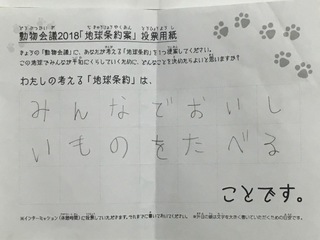 動物会議2018「地球条約案」投票用紙
きょうの「動物会議」に、あなたが考える「地球条約」を1つ提案してください。
この地球でみんなが平和にくらしていくために、どんなことを決めたらよいと思いますか?
わたしの考える「地球条約」は、
みんなでおいし
いものをたべる
ことです。